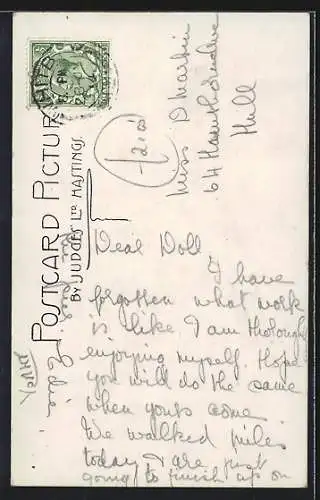 POSTCARD PICTUR
BY JUDGES LTD HASTINGS.
Miss D Martin
64 Hawthorndene
Hull
Dear Doll
I have
forgotten what work
is like I am thoroughly
enjoying myself. Hope
you will do the same
when yours come.
We walked miles
today & are just
going to finish up on